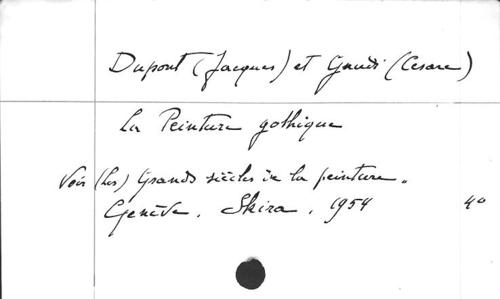 Dupont (Jacques) et Gnudi (Cesare)
La Peinture gothique
Voir (Les) Grands siècles de la peinture.
Genève. Skira. 1954 4°